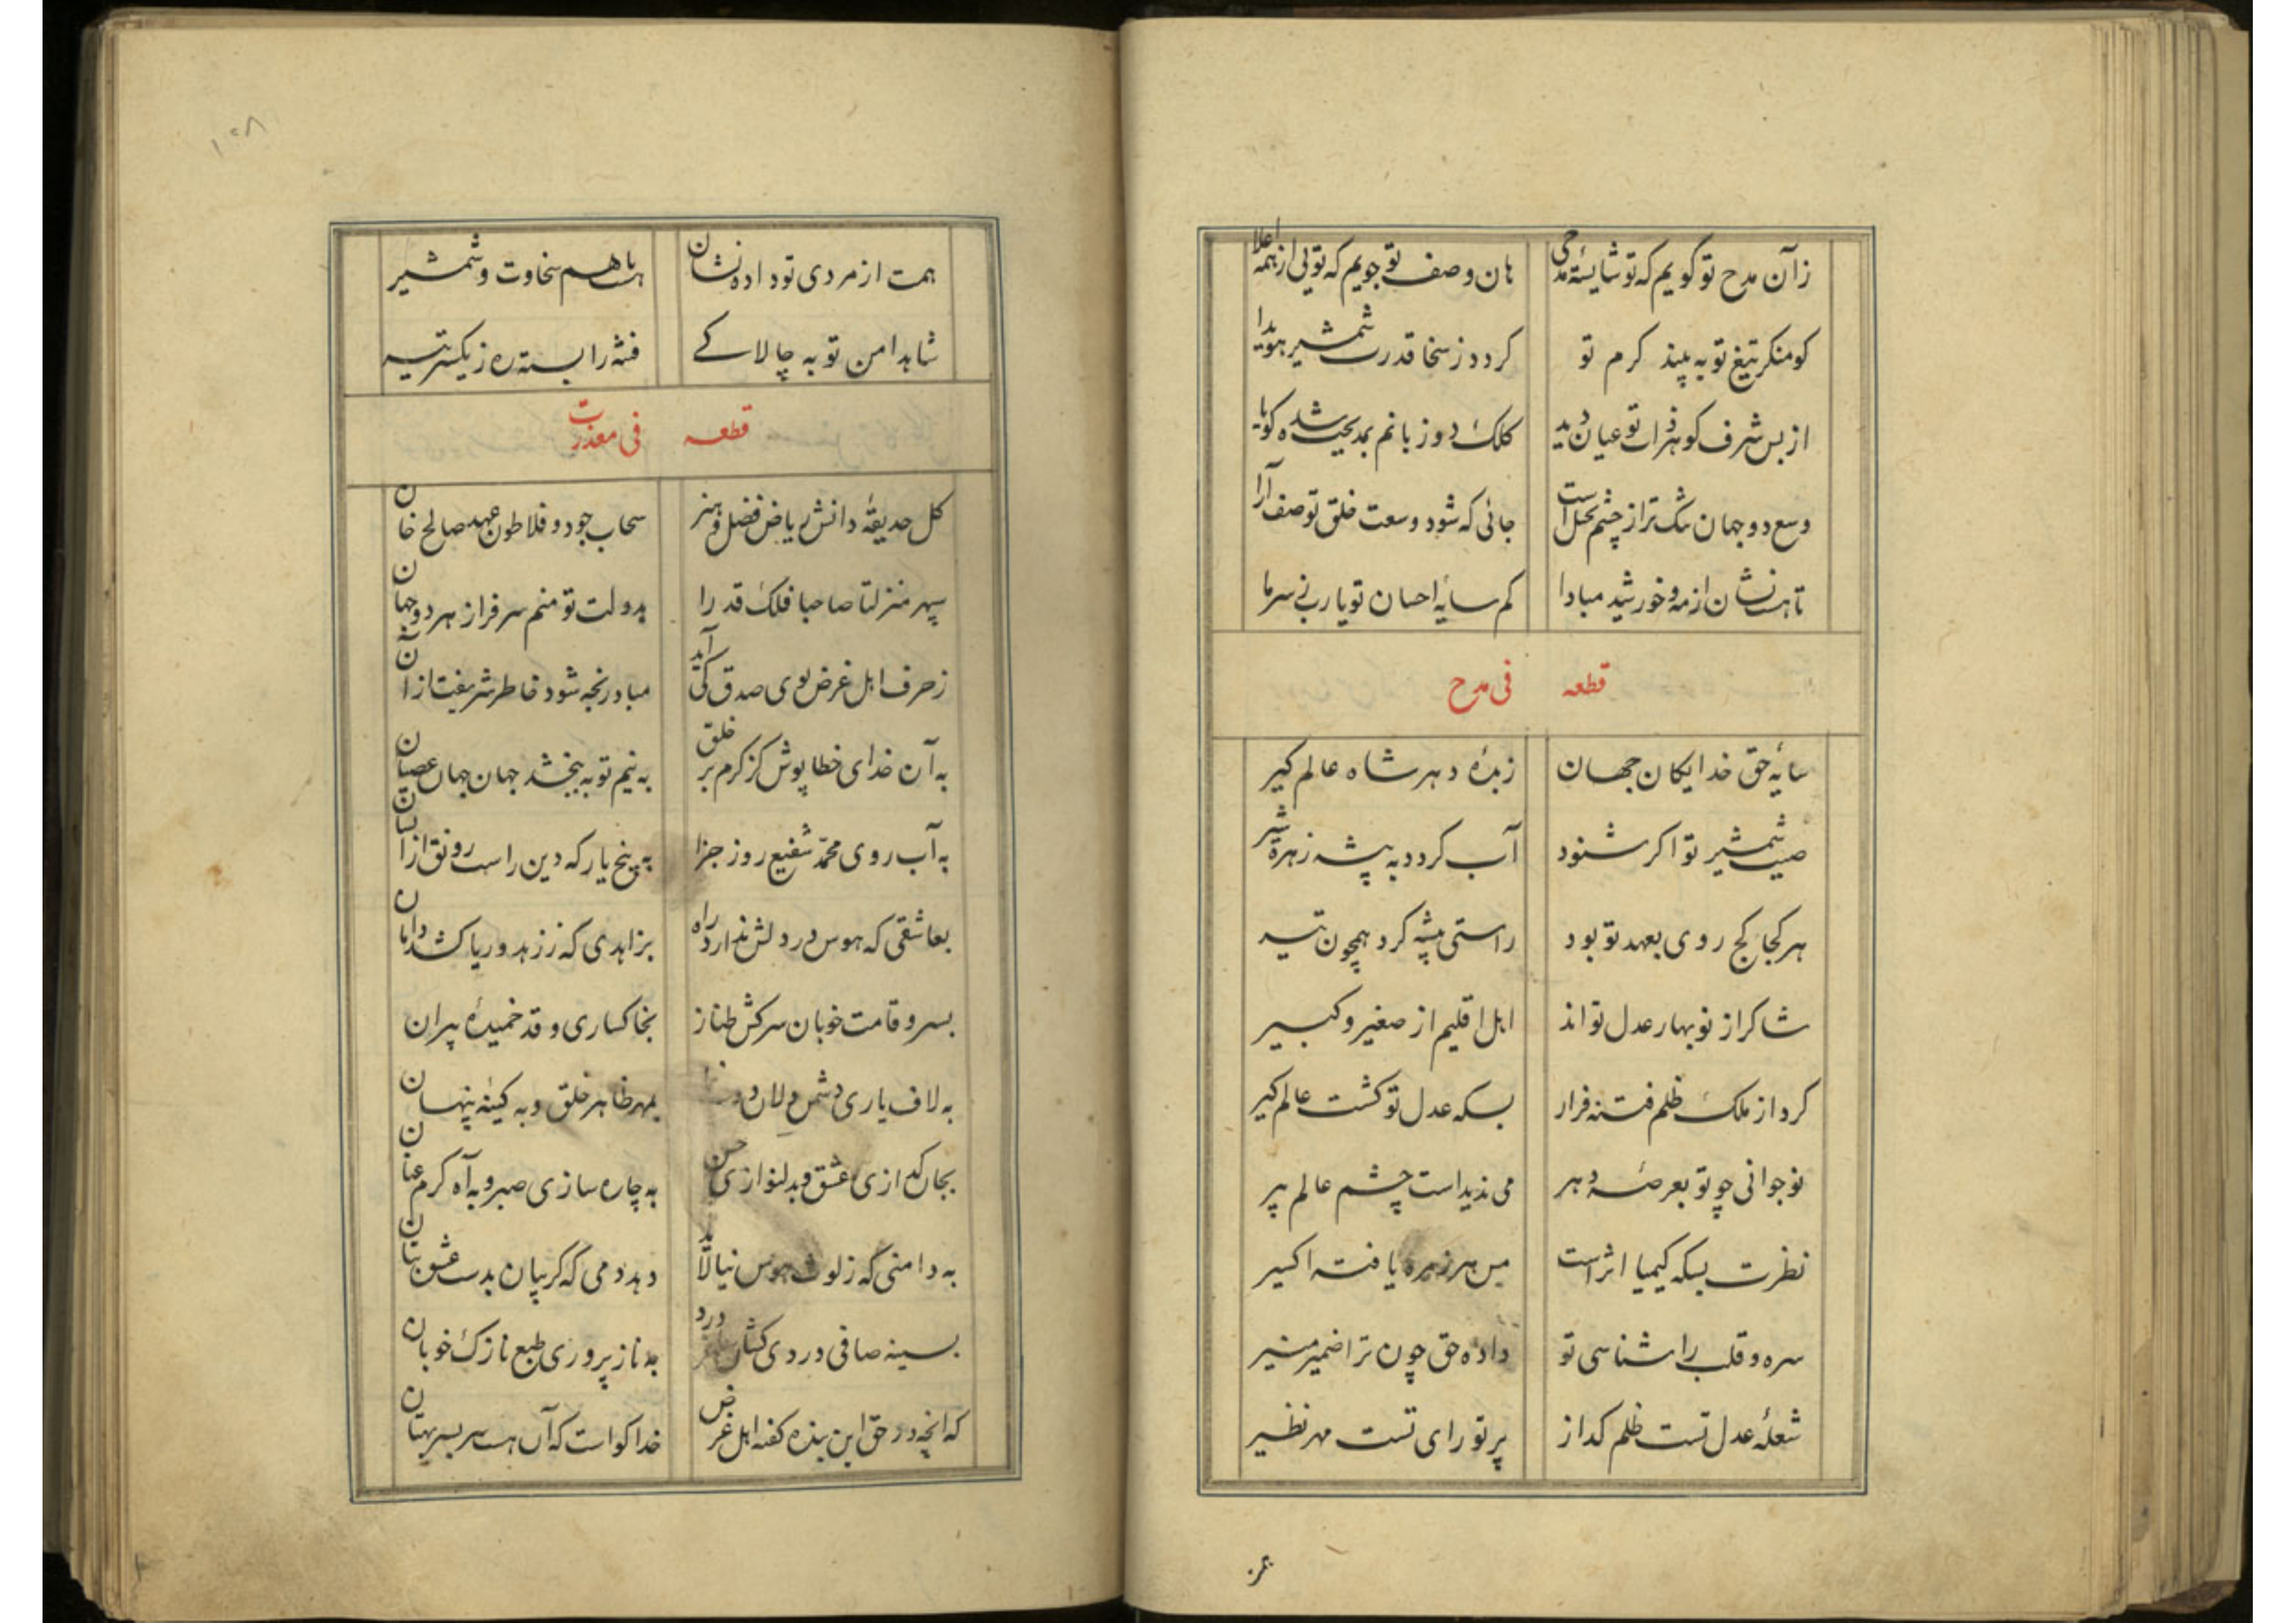 زآن مدح تو گویم که تو شایستهٔ مدحی هان وصف تو جویم که تویی از همه اعلا
کو منکر تیغ تو به بیند کرم تو گردد ز سخا قدرت شمشیر هویدا
از بس شرف گوهر ذات تو عیان دید کلک دو زبانم بمدیحت شده گویا
وسع دو جهان تنک تر از چشم بخیل است جائی که شود وسعت خلق تو صف آرا
تا هست نشان از مه و خورشید مبادا کم سایهٔ احسان تو یارب ز سر ما
قطعه فی مدح
سایهٔ حق خدایکان جهان زبدهٔ دهر شاه عالم کیر
صیت شمشیر تو اکر شنود آب کردد به پیشه زهرهٔ شیر
هر کجا کج روی بعهد تو بود راستی پیشه کرد همچون تیر
شاکر از نوبهار عدل تو اند اهل اقلیم از صغیر و کبیر
کرد از ملک ظلم فتنه فرار بسکه عدل تو کشت عالم کیر
نوجوانی چو تو بعرصهٔ دهر می ندیداست چشم عالم پیر
نظرت بسکه کیمیا اثر است مس هر زهره یافته اکسیر
سره و قلب را شناسی تو داده حق چون ترا ضمیر منیر
شعلهٔ عدل تست ظلم کداز پرتو رای تست مهر نظیر
همت
۱۰۸
همت از مردی تو داده نشان با هم سخاوت و شمشیر
شاهد امن تو به چالاکے فتنه را بسته ره ز یکسر تیر
قطعه فی معذرت
کل حدیقهٔ دانش ریاض فضل و هنر سحاب جود و فلاطون عهد صالح خان
سپهر منزلتا صاحبا فلک قدرا بدولت تو منم سرفراز هر دو جهان
ز حرف اهل غرض بوی صدق کی آید مباد رنجه شود خاطر شریفت از آن
به آن خدای خطا پوش کز کرم بر خلق به نیم توبه ببخشد جهان جهان عصیان
به آب روی محمد شفیع روز جزا به پنج یار که دین راست رونق از ایشان
بعاشقی که هوس در دلش ندارد راه بزاهدی که ز زهد و ریا کشد دامان
بسرو قامت خوبان سرکش طناز بخاکساری و قد خمیدهٔ پیران
به لاف یاری دشمن دلان بمهر ظاهر خلق و به کینهٔ پنهان
بجان کدازی عشق و بدلنوازی حسن به چاره سازی صبر و به آه کرم عنان
به دامنی که ز لوث هوس نیالاید بدرد می که کریبان بدست عشق بتان
بسینه صافی دردی کشان به ناز پروری طبع نازک خوبان
که انچه در حق این بنده کفته اهل غرض خدا کواست که آن هست سر بسر بهتان